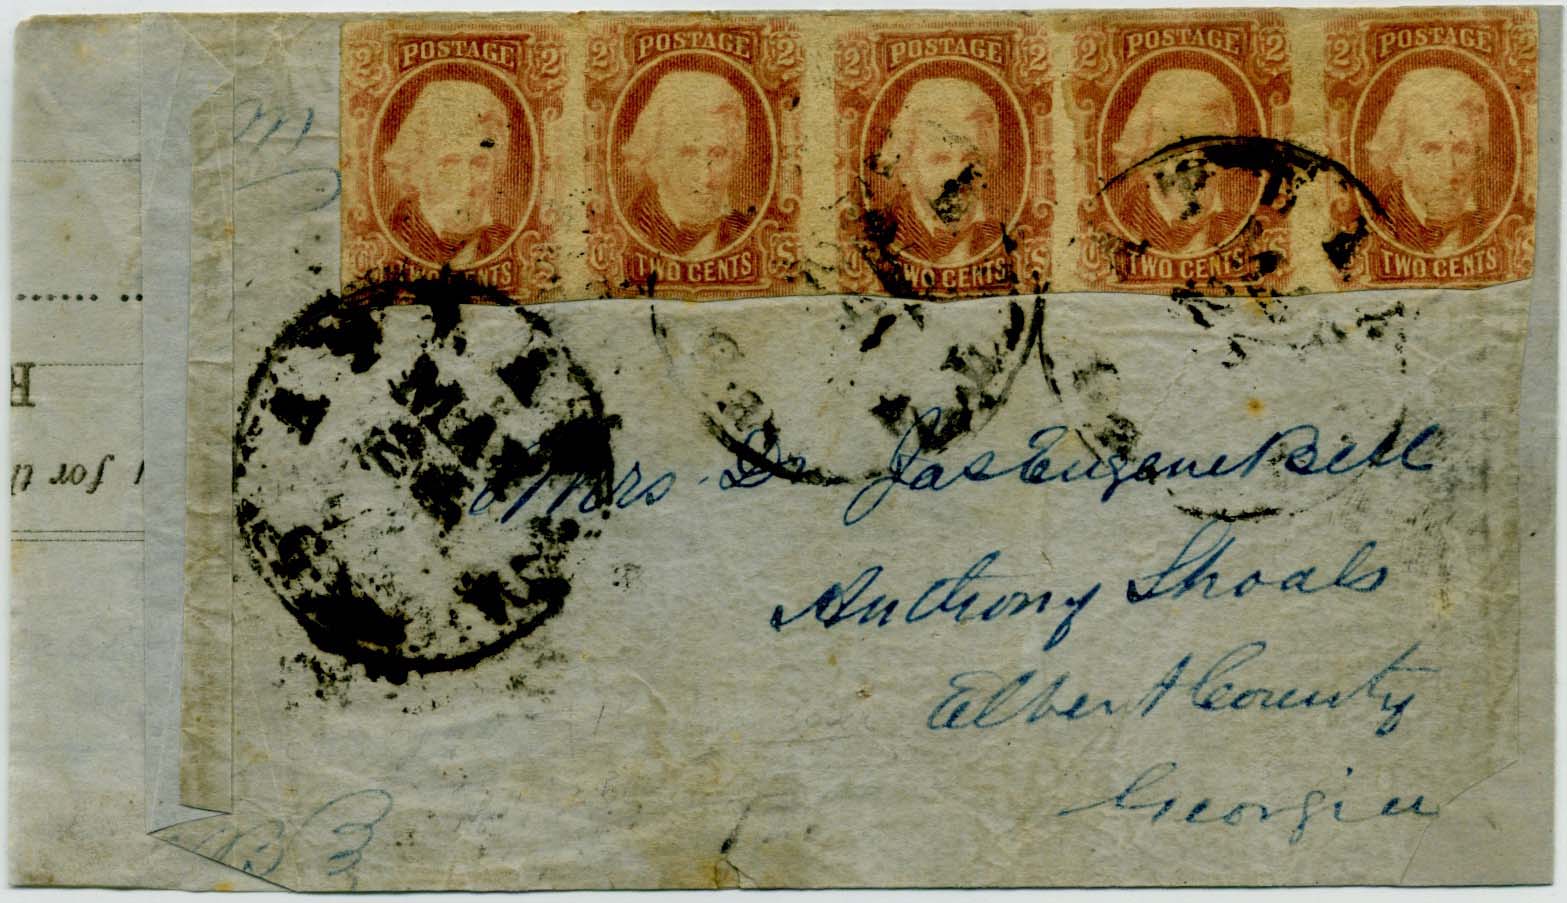 2 POSTAGE 2 2 POSTAGE 2 2 POSTAGE 2 2 POSTAGE 2 2 POSTAGE
TWO CENTS TWO CENTS TWO CENTS TWO CENTS TWO CENTS
Mrs. Dr Jas Eugene Bell
Anthony Shoals
Elbert County
Georgia
for th